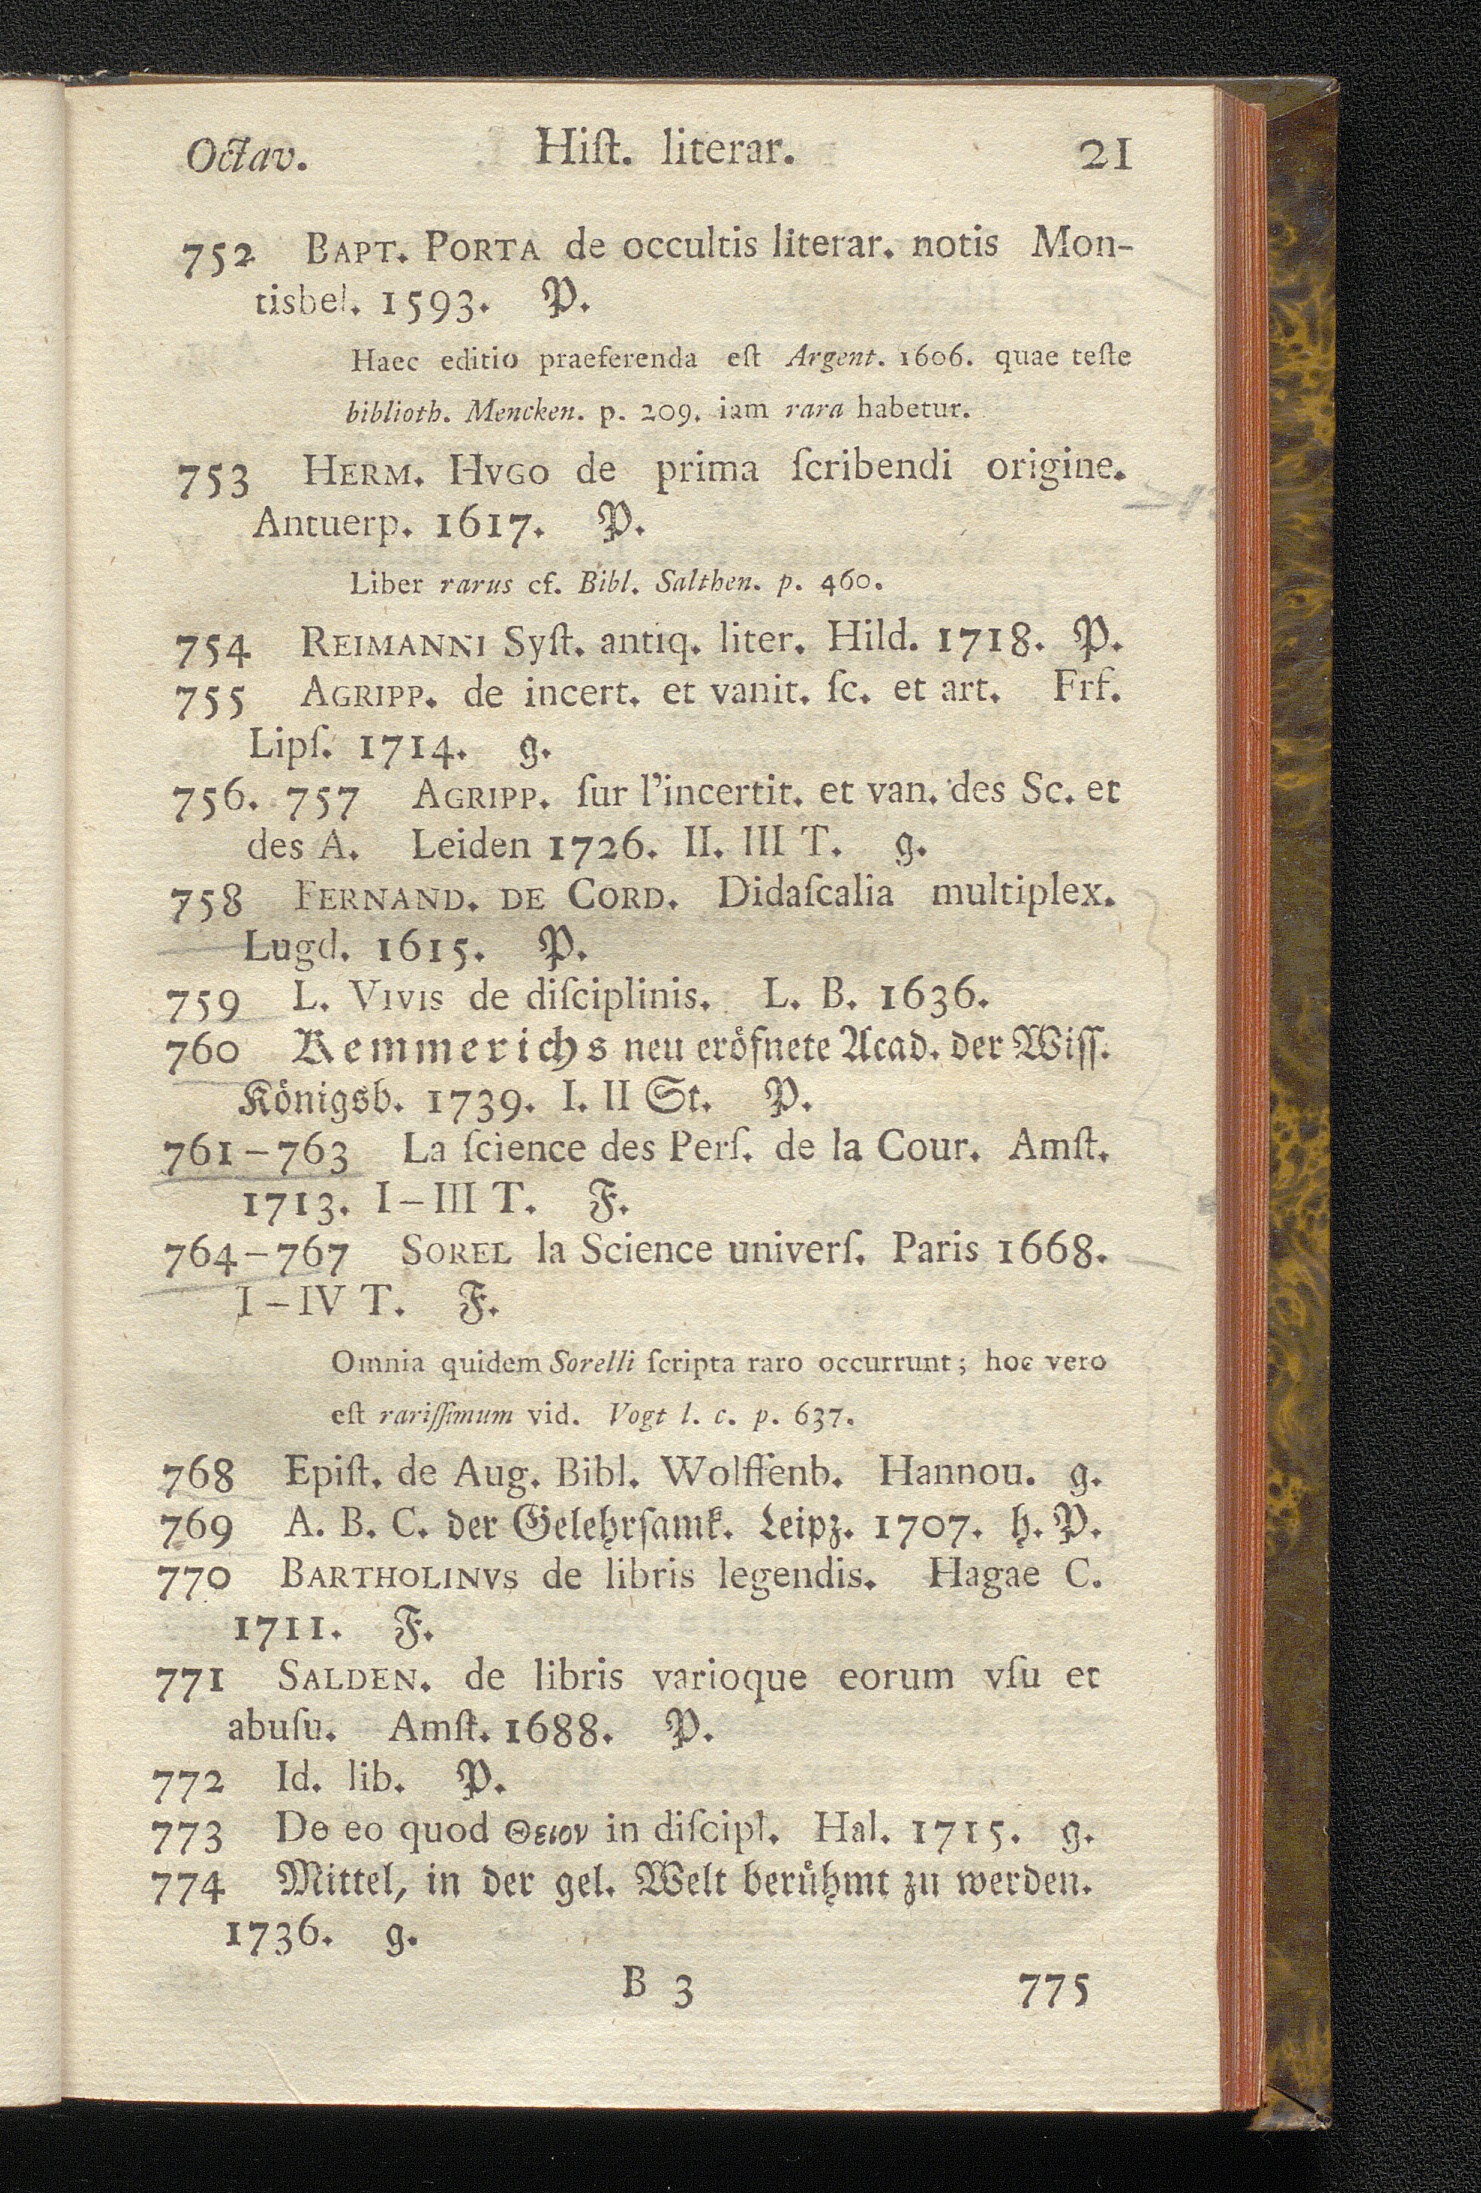 Octav. Hiſt. literar. 21
752 BAPT. PORTA de occultis literar. notis Mon-
tisbel. 1593. P.
Haec editio praeferenda eſt Argent. 1606. quae teſte
biblioth. Mencken. p. 209. iam rara habetur.
753 HERM. HVGO de prima ſcribendi origine.
Antuerp. 1617. P.
Liber rarus cf. Bibl. Salthen. p. 460.
754 REIMANNI Syſt. antiq. liter. Hild. 1718. P.
755 AGRIPP. de incert. et vanit. ſc. et art. Frf.
Lipſ. 1714. g.
756. 757 AGRIPP. ſur l'incertit. et van. des Sc. et
des A. Leiden 1726. II. III T. g.
758 FERNAND. DE CORD. Didaſcalia multiplex.
Lugd. 1615. P.
759 L. VIVIS de diſciplinis. L. B. 1636.
760 Kemmerichs neu eröfnete Acad. der Wiſſ.
Königsb. 1739. I. II St. P.
761–763 La ſcience des Perſ. de la Cour. Amſt.
1713. I–III T. F.
764–767 SOREL la Science univerſ. Paris 1668.
I–IV T. F.
Omnia quidem Sorelli ſcripta raro occurrunt; hoc vero
eſt rariſſimum vid. Vogt l. c. p. 637.
768 Epiſt. de Aug. Bibl. Wolffenb. Hannou. g.
769 A. B. C. der Gelehrſamk. Leipz. 1707. h. P.
770 BARTHOLINVS de libris legendis. Hagae C.
1711. F.
771 SALDEN. de libris varioque eorum vſu et
abuſu. Amſt. 1688. P.
772 Id. lib. P.
773 De eo quod Θειον in diſcipl. Hal. 1715. g.
774 Mittel, in der gel. Welt berühmt zu werden.
1736. g.
B 3 775